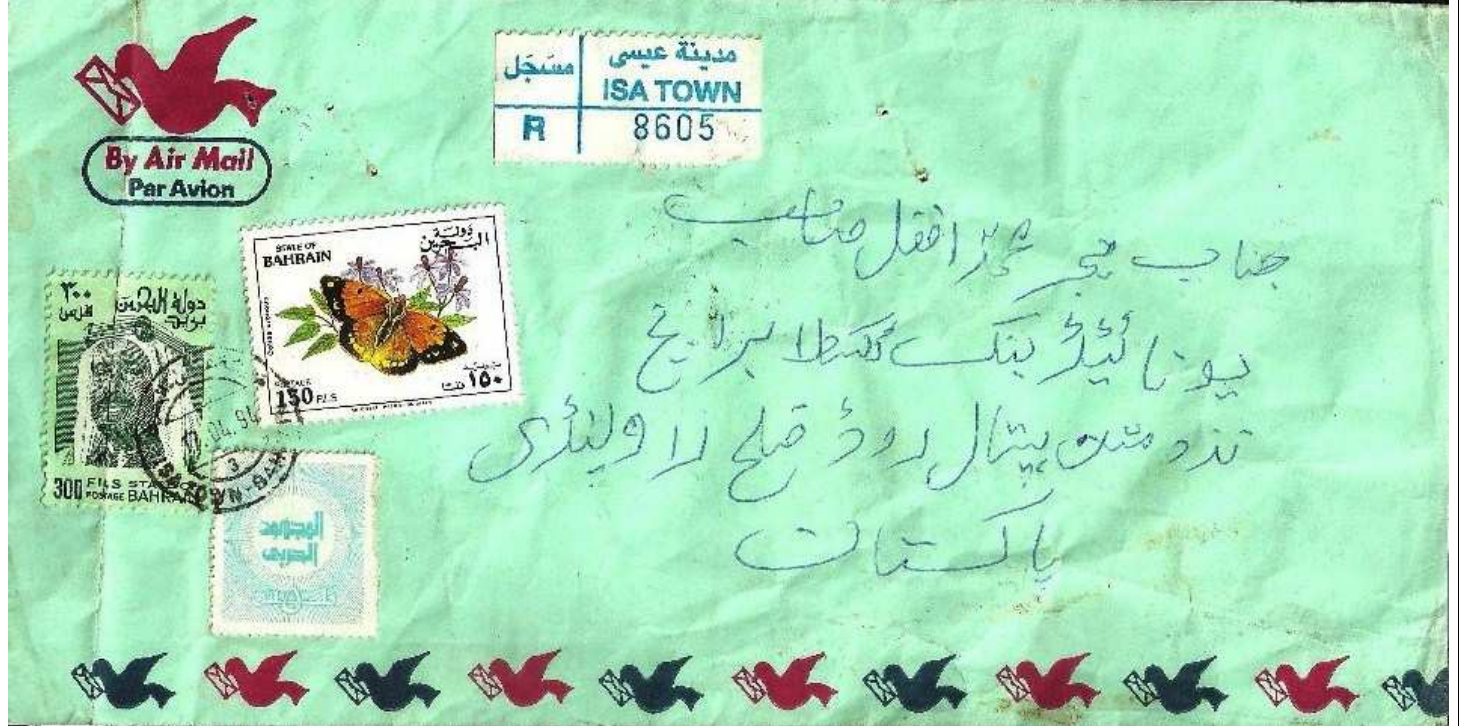 By Air Mail
Par Avion
مسَجَل
مدينة عيسى
ISA TOWN
R
8605
STATE OF
BAHRAIN
دولة
البحرين
POSTAGE
150 FILS
١٥٠ فلسا
٣٠٠
فلس
دولة البحرين
بريد
300 FILS STATE OF
POSTAGE BAHRAIN
04.94
3
المجهود
الحربي
جناب منیجر محمد افضل صاحب
یونائیٹڈ بنک برانچ
نزد مشن ہسپتال روڈ ضلع راولپنڈی
پاکستان